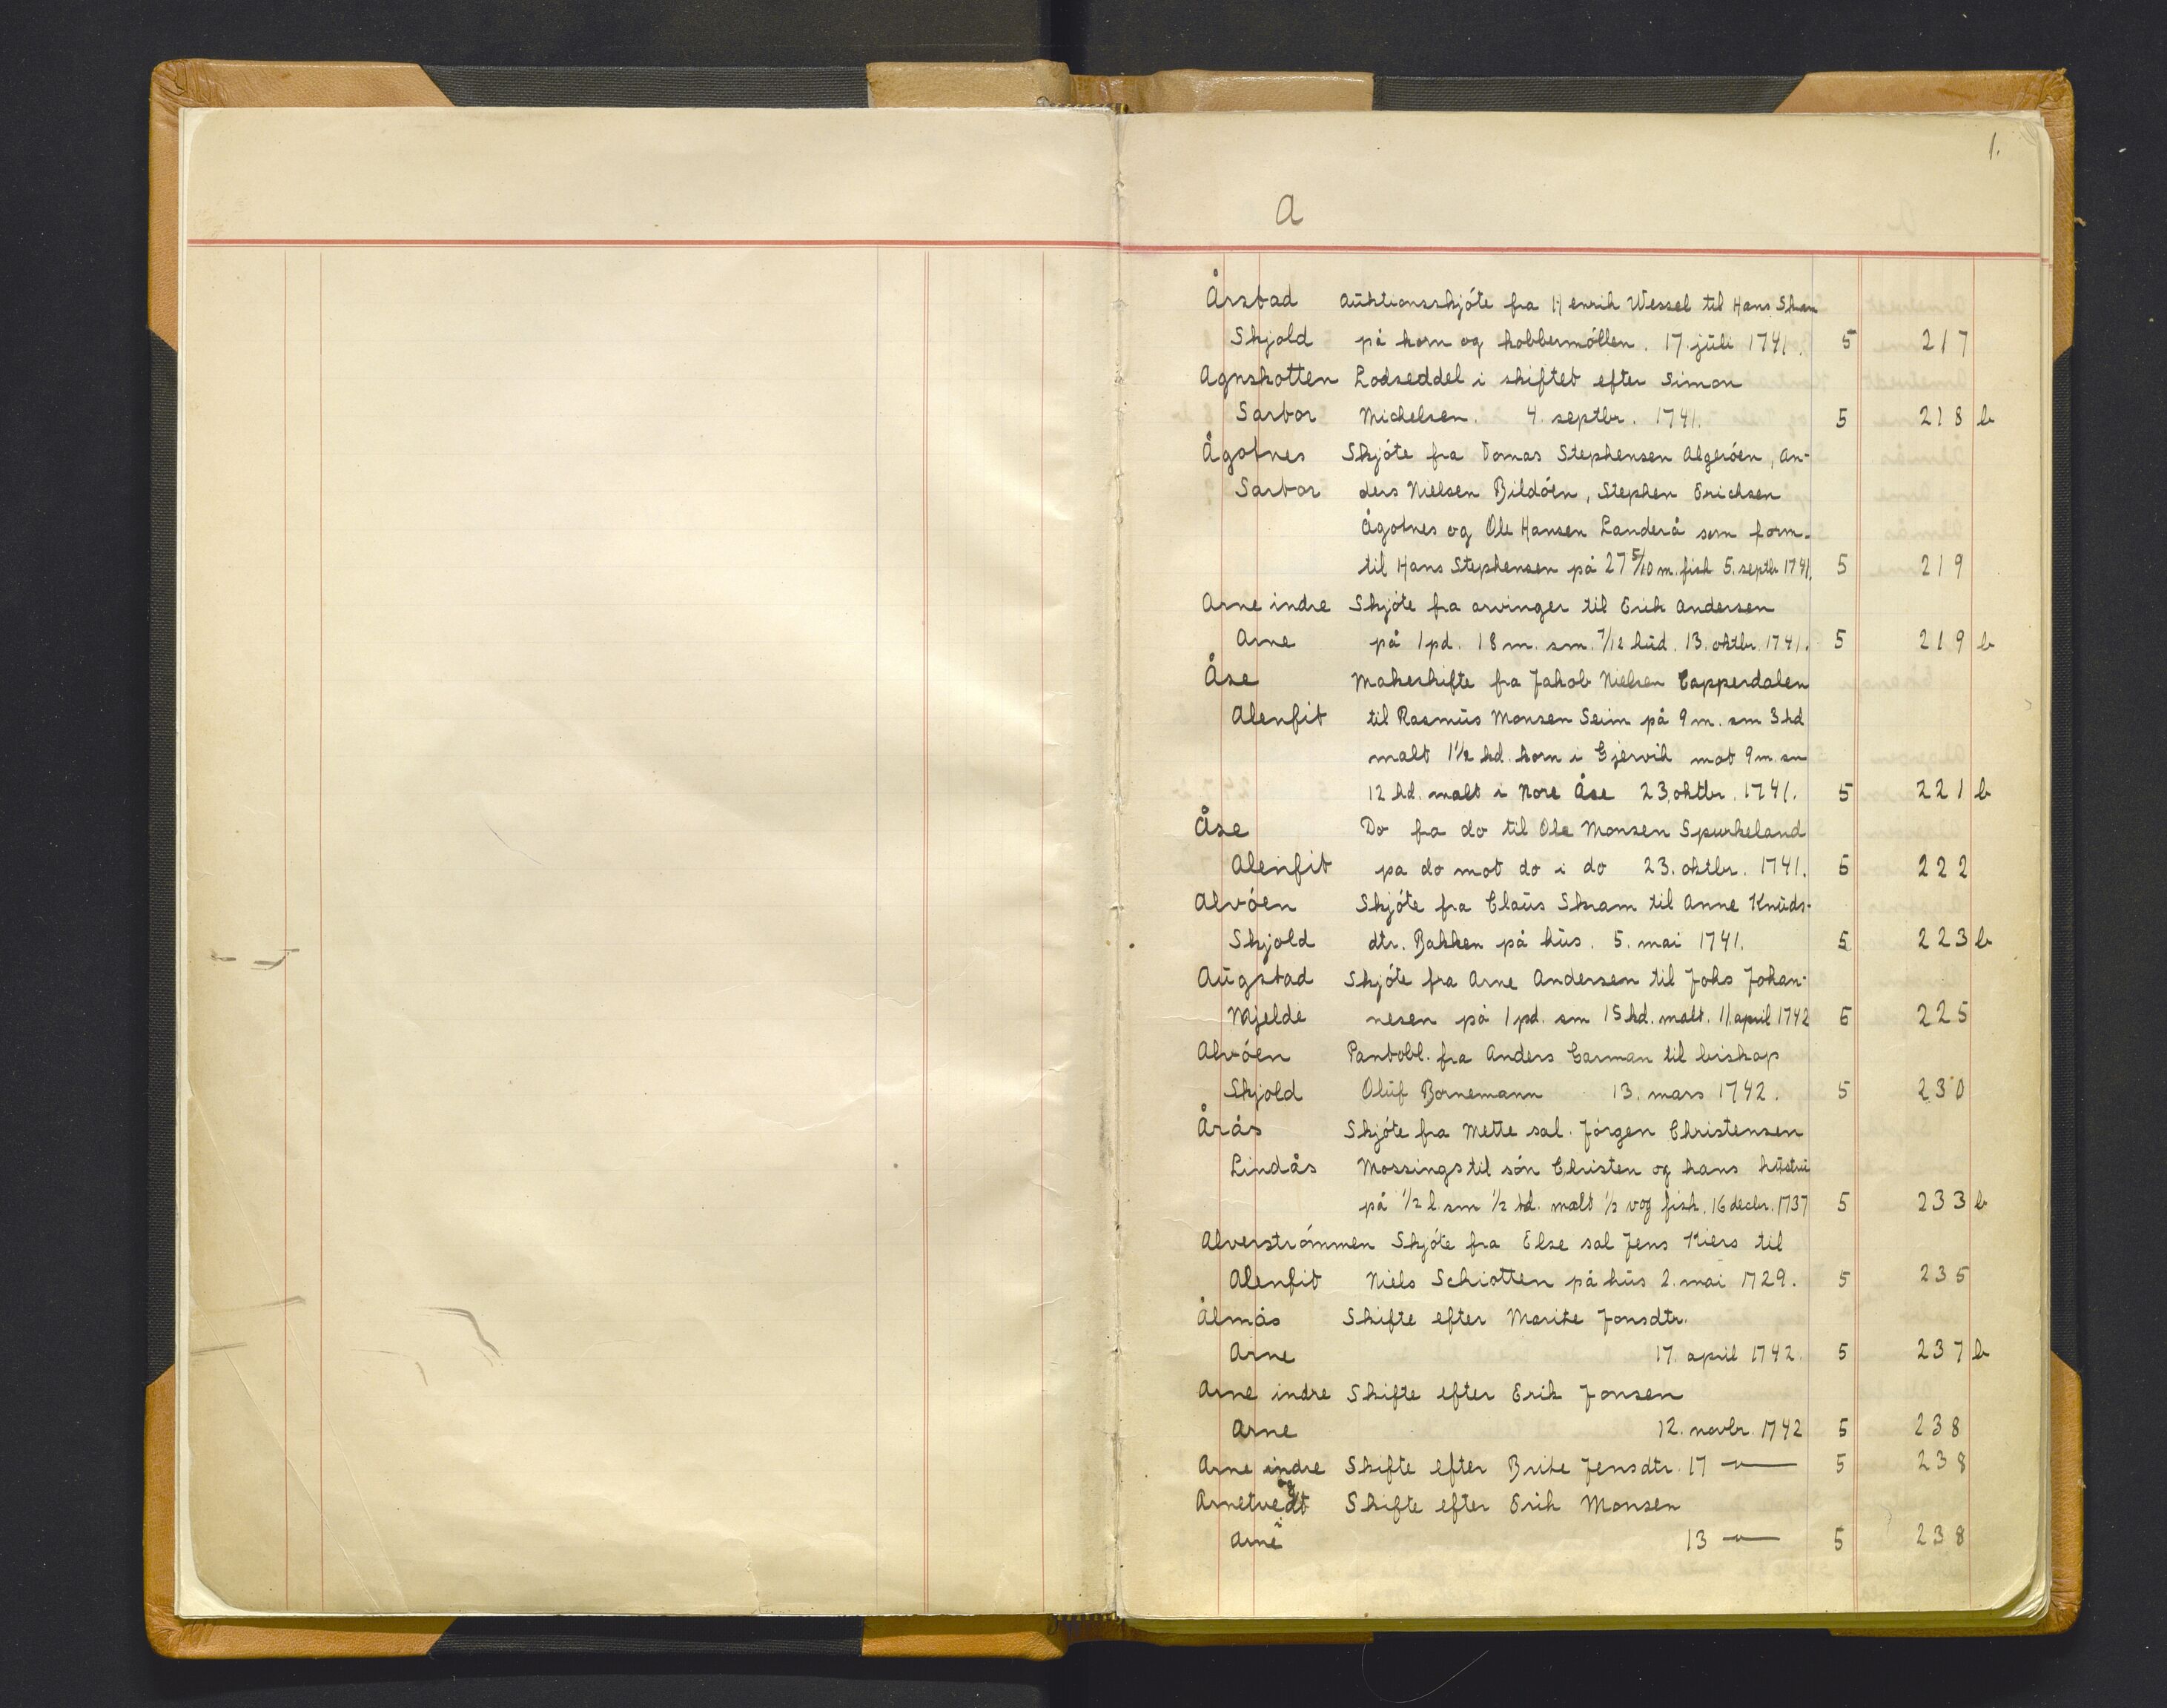 1.
A
Årstad Auktionsskjöte fra Henrik Wessel til Hans Skram
Skjold på korn og kobbermöllen. 17. juli 1741. 5 217
Agnskotten Lodseddel i skiftet efter Simon
Sartor Michelsen. 4. septbr. 1741. 5 218 b
Ågotnes Skjöte fra Tomas Stephensen Algeröen, An-
Sartor ders Nielsen Bildöen, Stephen Erichsen
Ågotnes og Ole Hansen Landerå som form.
til Hans Stephensen på 27 5/10 m. fisk 5. septbr 1741. 5 219
Arne indre Skjöte fra arvinger til Erik Andersen
Arne på 1 pd. 18 m. sm. 7/12 hud. 13. oktbr. 1741. 5 219 b
Åse Makeskifte fra Jakob Nielsen Tapperdalen
Alenfit til Rasmus Monsen Seim på 9 m. sm 3 hd
malt 1 1/2 hd. korn i Gjervik mot 9 m. sm
12 hd. malt i Nore Åse 23. oktbr. 1741. 5 221 b
Åse Do fra do til Ole Monsen Spurkeland
Alenfit pa do mot do i do 23. oktbr. 1741. 5 222
Alvöen Skjöte fra Claus Skram til Anne Knuds-
Skjold dtr. Bakken på hus. 5. mai 1741. 5 223 b
Augstad Skjöte fra Arne Andersen til Johs Johan-
Mjelde nesen på 1 pd. sm 15 hd. malt. 11. april 1742 5 225
Alvöen Pantobl. fra Anders Garman til biskop
Skjold Oluf Bornemann 13. mars 1742. 5 230
Årås Skjöte fra Mette sal. Jörgen Christensen
Lindås Mossings til sön Christen og hans hustru
på 1/2 l. sm 1/2 td. malt 1/2 vog fisk. 16 decbr. 1737 5 233 b
Alverströmmen Skjöte fra Else sal Jens Kiers til
Alenfit Niels Schiotten på hus 2. mai 1729. 5 235
Ålmås Skifte efter Marite Jonsdtr.
Arne 17. april 1742. 5 237 b
Arne indre Skifte efter Erik Jonsen
Arne 12. novbr. 1742 5 238
Arne indre Skifte efter Brite Jensdtr. 17 —"— 5 238
og
Arnetvedt Skifte efter Erik Monsen
Arne 13 —"— 5 238